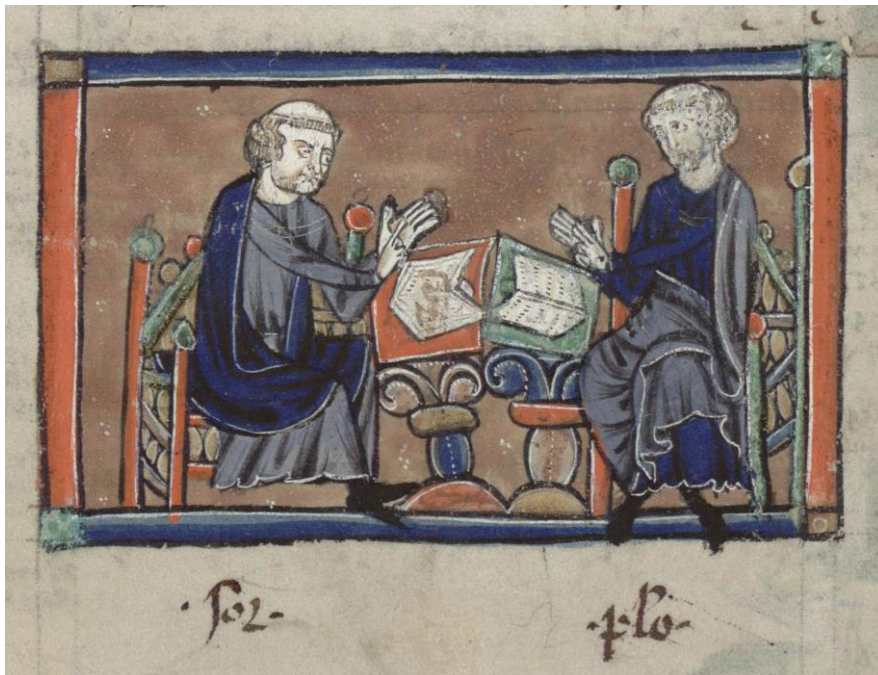 ·sor· ·plo·